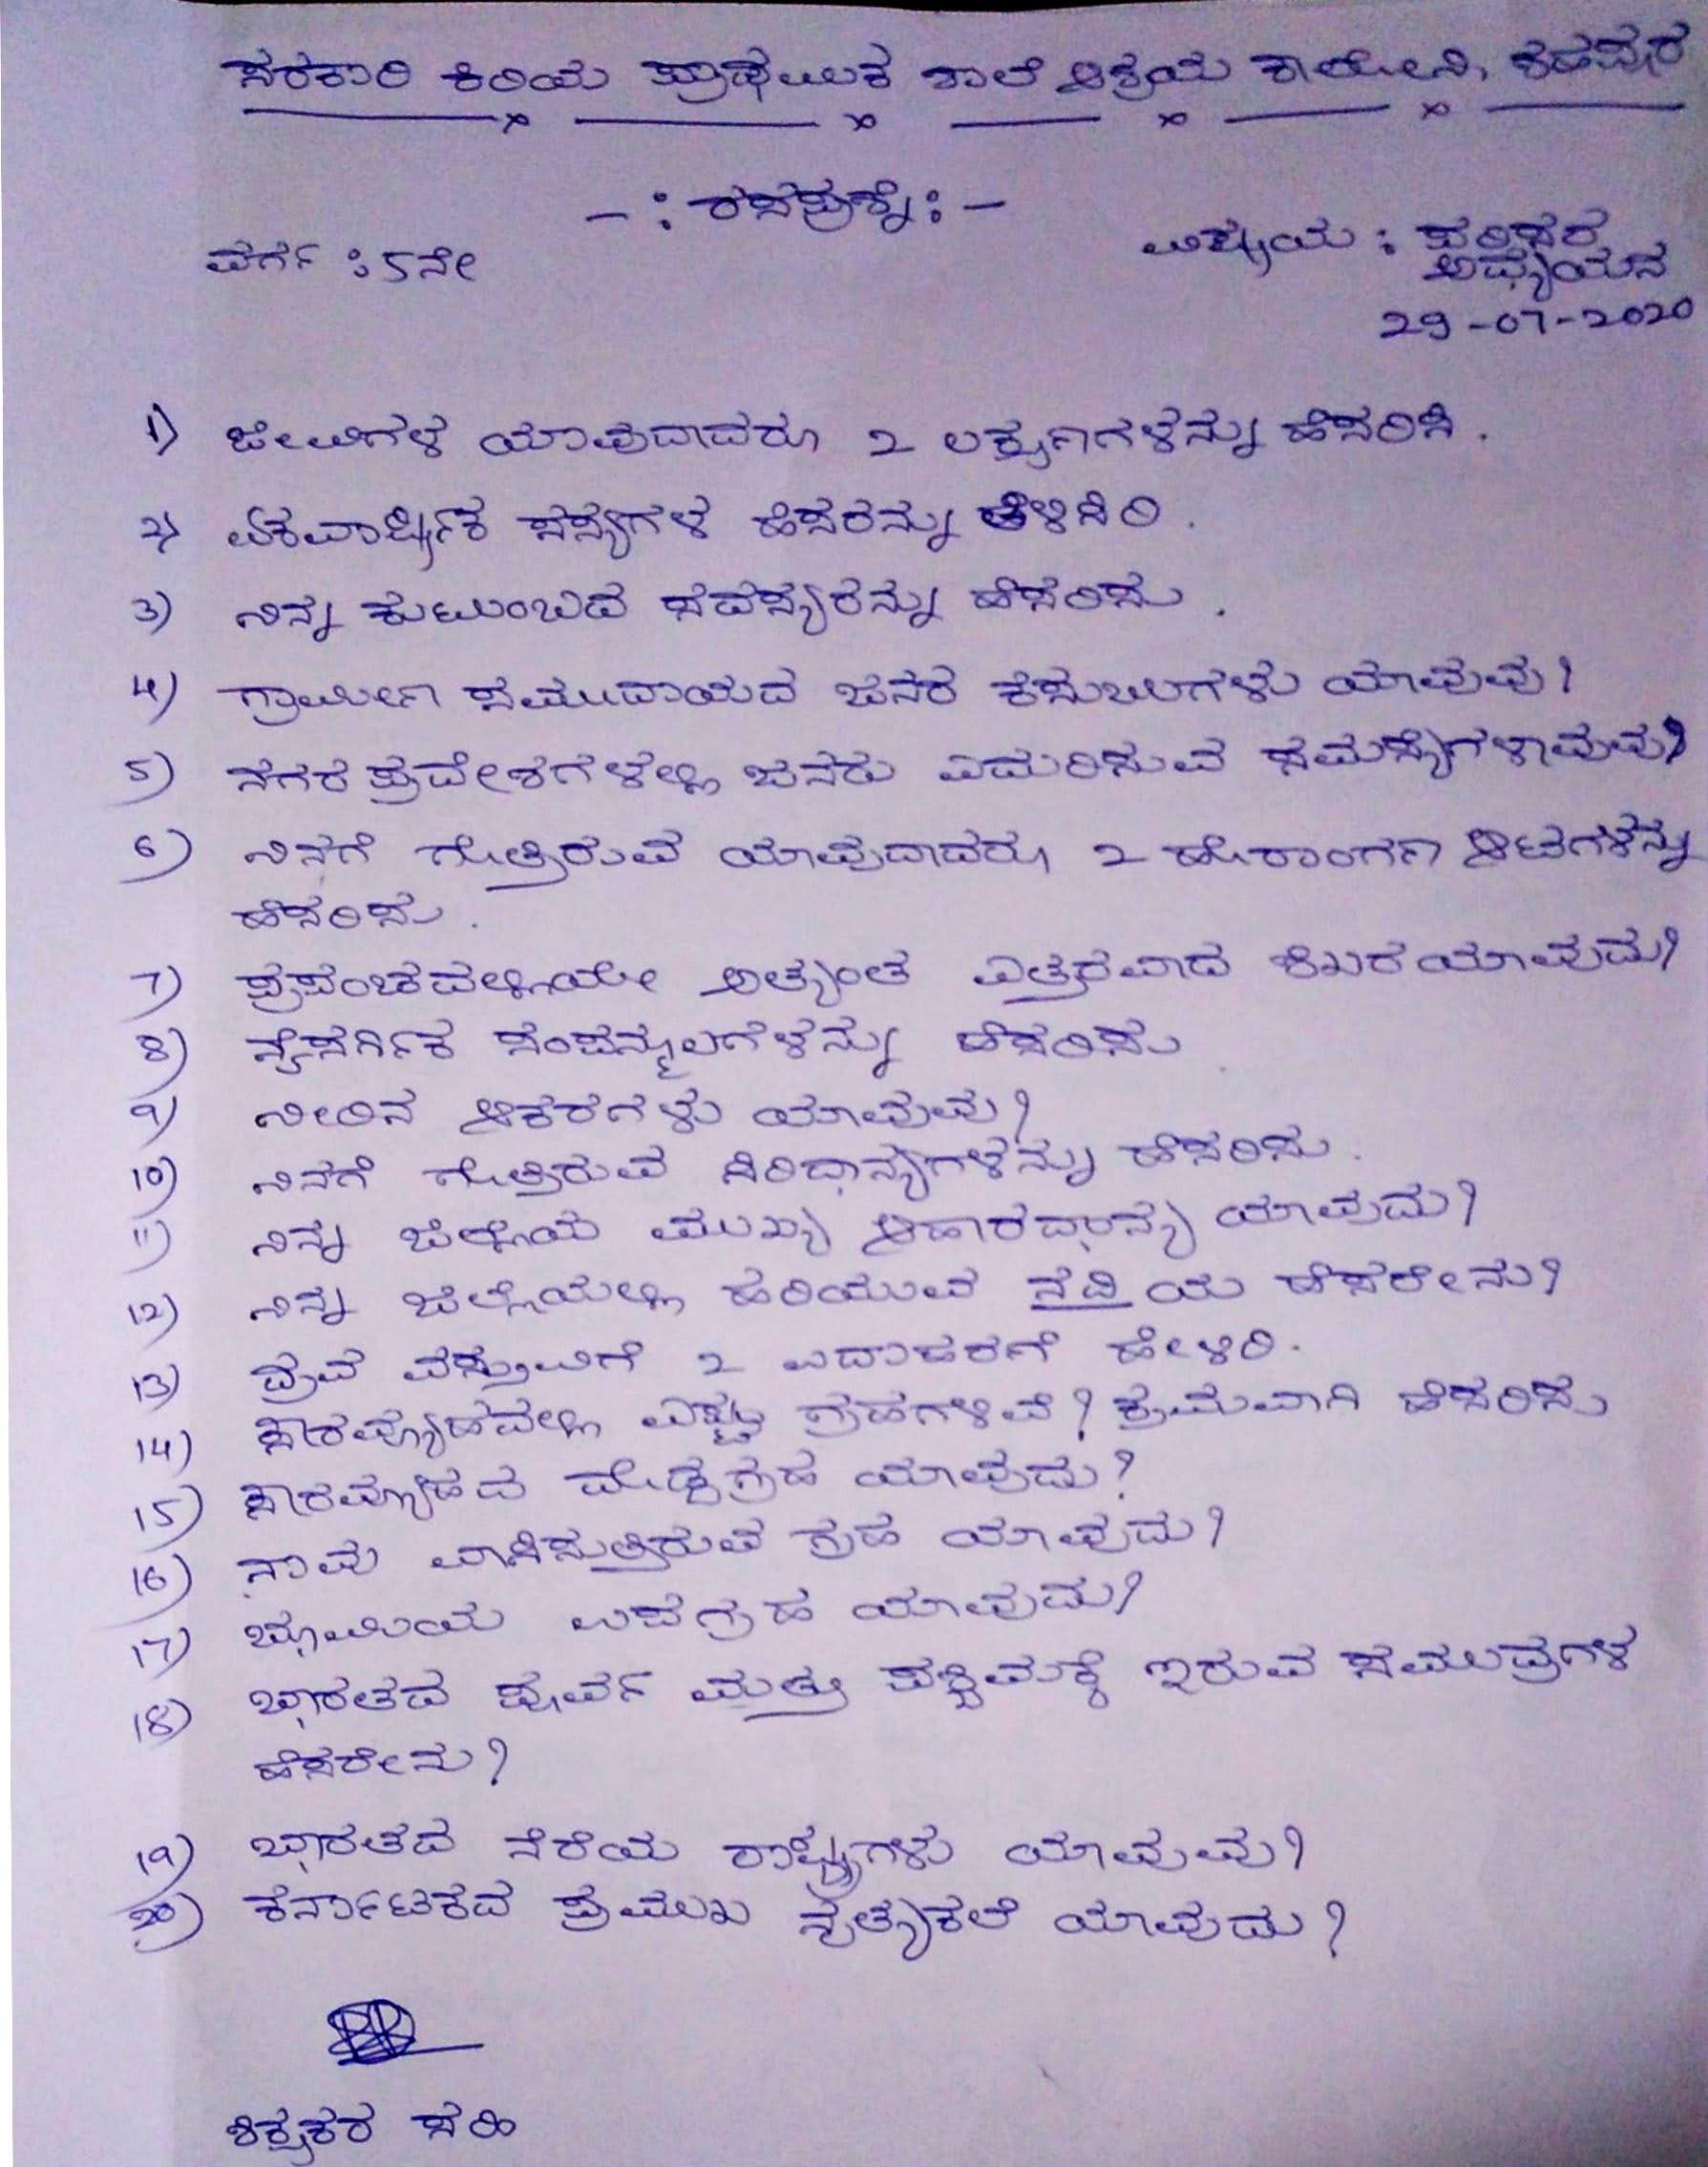 ಸರಕಾರಿ ಕಿರಿಯ ಪ್ರಾಥಮಿಕ ಶಾಲೆ ಆಶ್ರಯ ಕಾಲೋನಿ, ಶಹಪುರ
-: ರಸಪ್ರಶ್ನೆ :-
ವರ್ಗ : 5ನೇ
ವಿಷಯ : ಪರಿಸರ
ಅಧ್ಯಯನ
29-07-2020
1) ಜೀವಿಗಳ ಯಾವುದಾದರೂ 2 ಲಕ್ಷಣಗಳನ್ನು ಹೆಸರಿಸಿ.
2) ಏಕವಾರ್ಷಿಕ ಸಸ್ಯಗಳ ಹೆಸರನ್ನು ತಿಳಿಸಿರಿ.
3) ನಿನ್ನ ಕುಟುಂಬದ ಸದಸ್ಯರನ್ನು ಹೆಸರಿಸು.
4) ಗ್ರಾಮೀಣ ಸಮುದಾಯದ ಜನರ ಕಸುಬುಗಳು ಯಾವುವು?
5) ನಗರ ಪ್ರದೇಶಗಳಲ್ಲಿ ಜನರು ಎದುರಿಸುವ ಸಮಸ್ಯೆಗಳಾವುವು?
6) ನಿನಗೆ ಗೊತ್ತಿರುವ ಯಾವುದಾದರು 2 ಹೊರಾಂಗಣ ಆಟಗಳನ್ನು
ಹೆಸರಿಸು.
7) ಪ್ರಪಂಚದಲ್ಲಿಯೇ ಅತ್ಯಂತ ಎತ್ತರವಾದ ಶಿಖರ ಯಾವುದು?
8) ನೈಸರ್ಗಿಕ ಸಂಪನ್ಮೂಲಗಳನ್ನು ಹೆಸರಿಸು
9) ನೀರಿನ ಆಕರಗಳು ಯಾವುವು?
10) ನಿನಗೆ ಗೊತ್ತಿರುವ ಸಿರಿಧಾನ್ಯಗಳನ್ನು ಹೆಸರಿಸು.
11) ನಿನ್ನ ಜಿಲ್ಲೆಯ ಮುಖ್ಯ ಆಹಾರಧಾನ್ಯ ಯಾವುದು?
12) ನಿನ್ನ ಜಿಲ್ಲೆಯಲ್ಲಿ ಹರಿಯುವ ನದಿಯ ಹೆಸರೇನು?
13) ದ್ರವ ವಸ್ತುವಿಗೆ 2 ಉದಾಹರಣೆ ಹೇಳಿರಿ.
14) ಸೌರವ್ಯೂಹದಲ್ಲಿ ಎಷ್ಟು ಗ್ರಹಗಳಿವೆ? ಕ್ರಮವಾಗಿ ಹೆಸರಿಸು
15) ಸೌರವ್ಯೂಹದ ದೊಡ್ಡಗ್ರಹ ಯಾವುದು?
16) ನಾವು ವಾಸಿಸುತ್ತಿರುವ ಗ್ರಹ ಯಾವುದು?
17) ಭೂಮಿಯ ಉಪಗ್ರಹ ಯಾವುದು?
18) ಭಾರತದ ಪೂರ್ವ ಮತ್ತು ಪಶ್ಚಿಮಕ್ಕೆ ಇರುವ ಸಮುದ್ರಗಳ
ಹೆಸರೇನು?
19) ಭಾರತದ ನೆರೆಯ ರಾಷ್ಟ್ರಗಳು ಯಾವುವು?
20) ಕರ್ನಾಟಕದ ಪ್ರಮುಖ ನೃತ್ಯಕಲೆ ಯಾವುದು?
ಶಿಕ್ಷಕರ ಸಹಿ